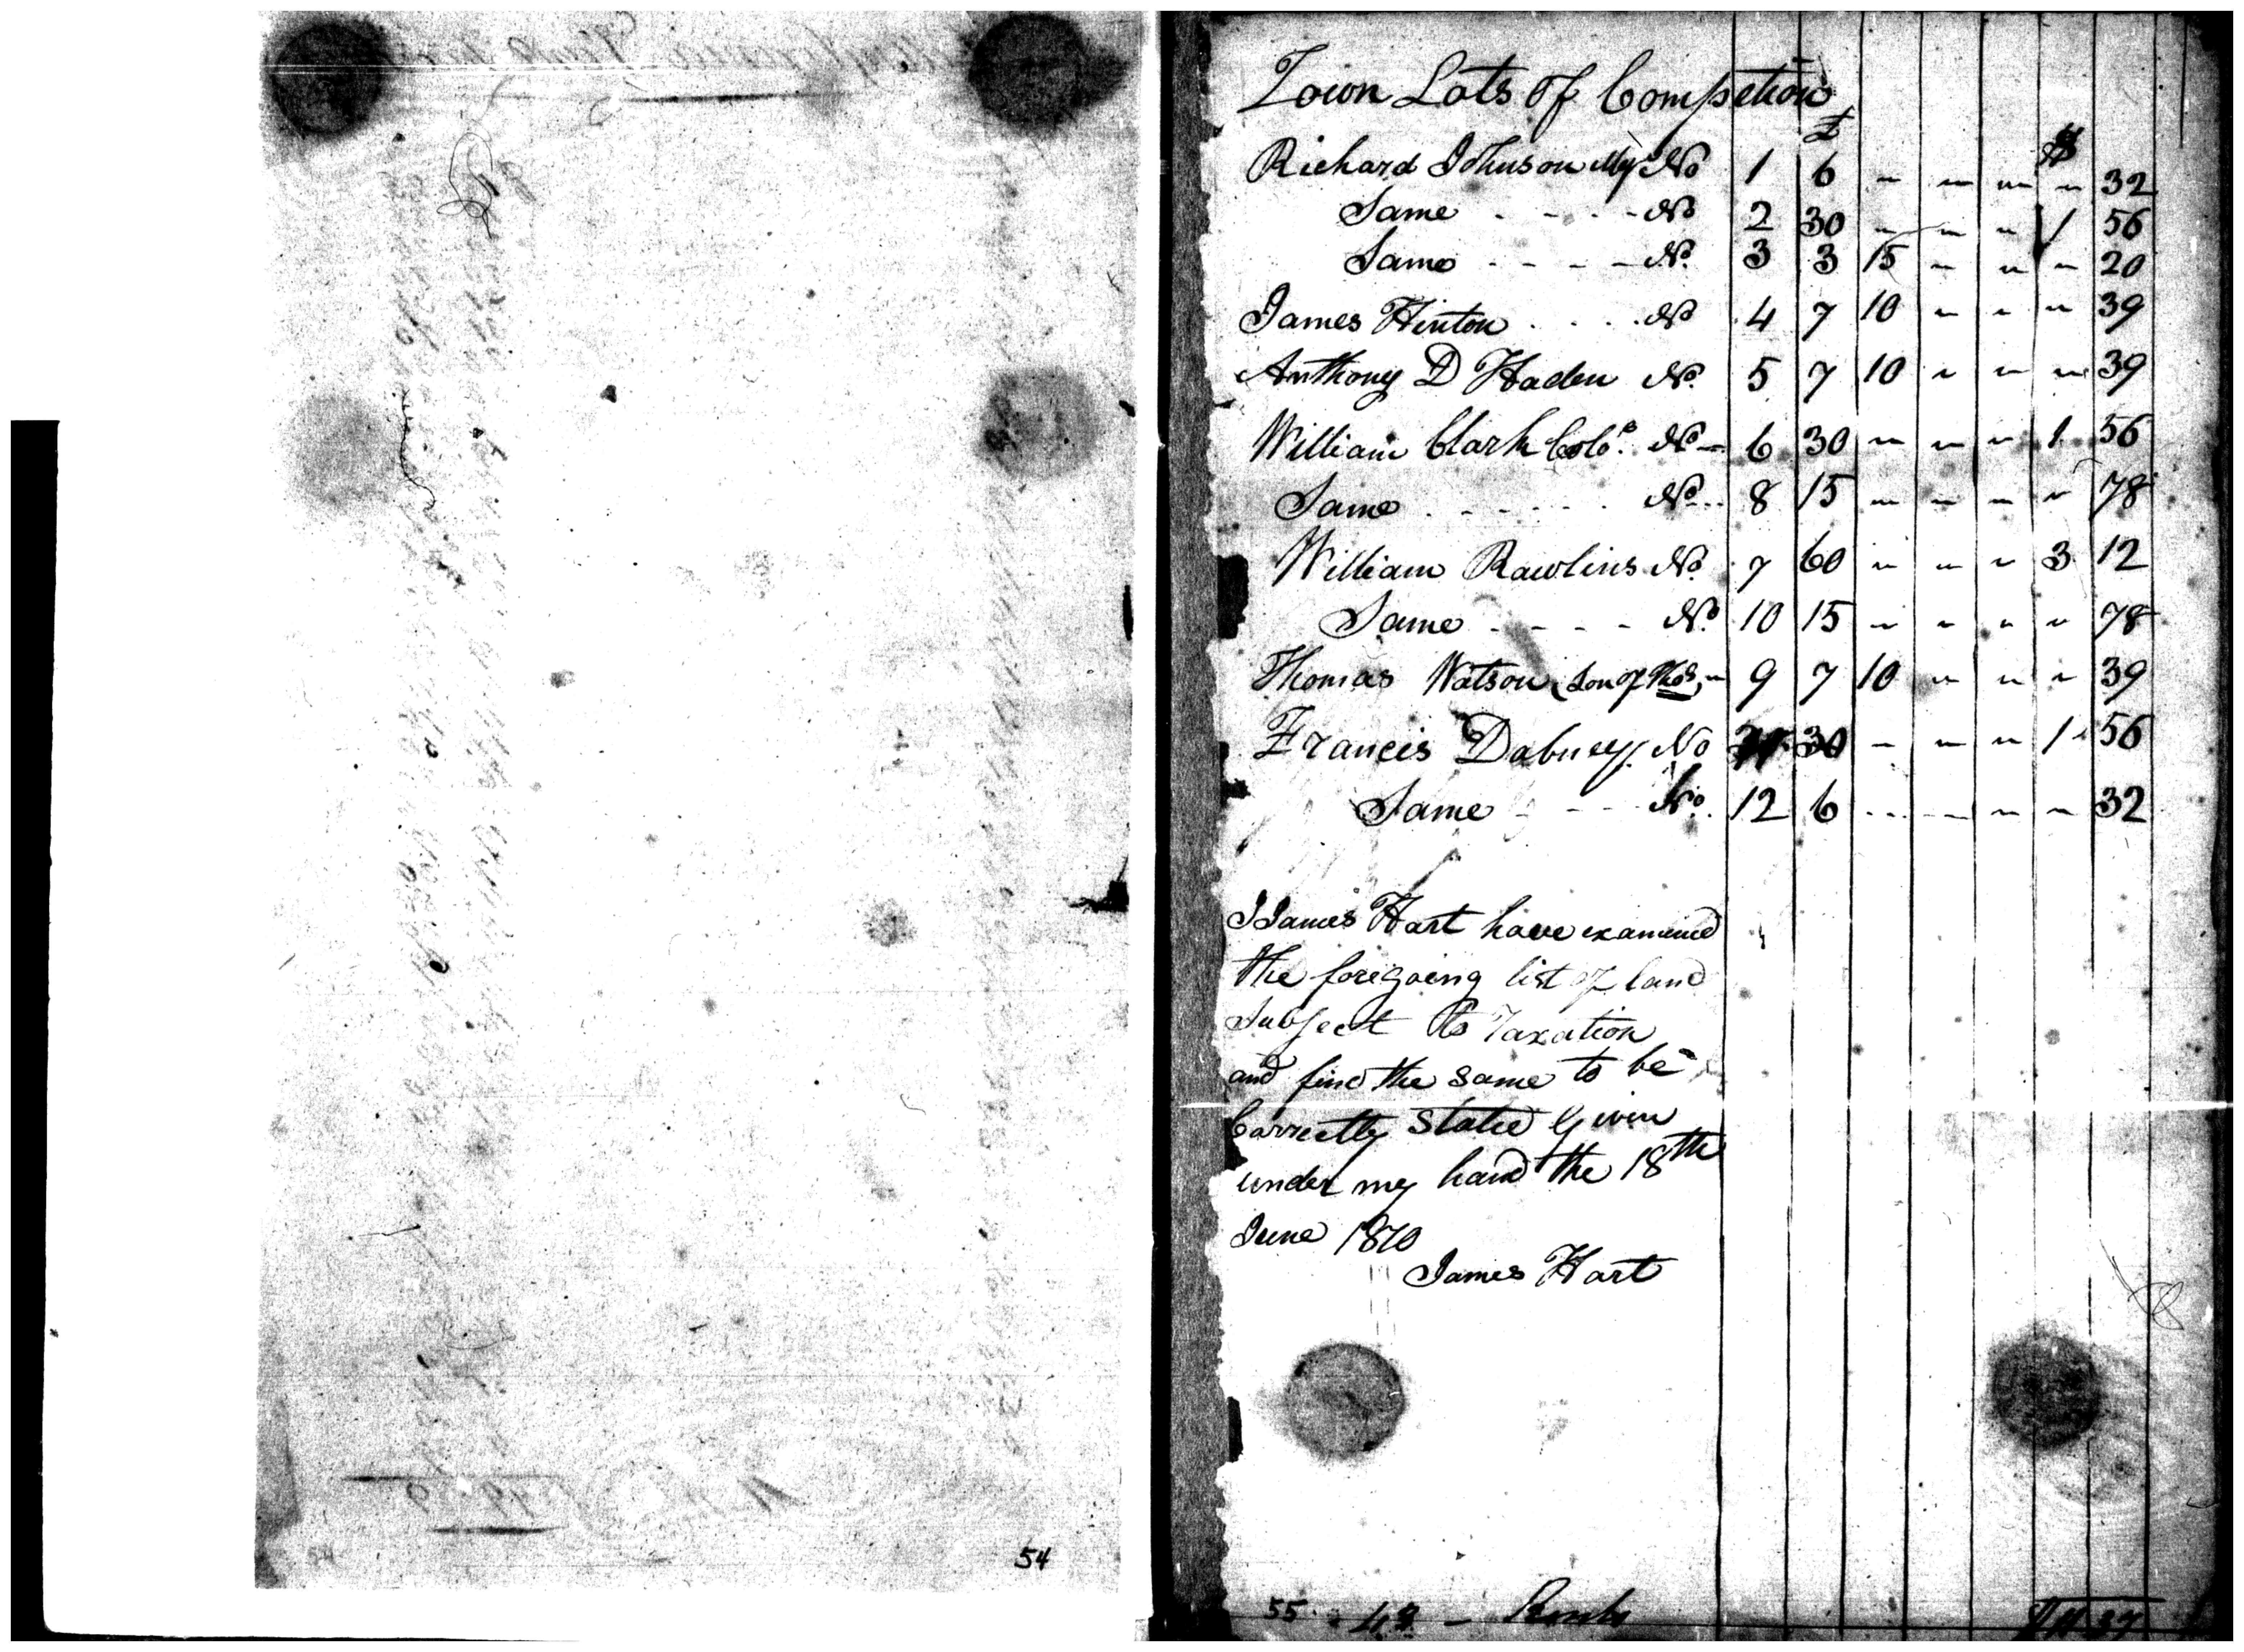 54
Town Lots of Competion
£ $
Richard Johnson My No 1 6 - - - - 32
Same - - - - No 2 30 - - - 1 56
Same - - - - No. 3 3 15 - - - 20
James Hinton . . . . No 4 7 10 - - - 39
Anthony D Haden No. 5 7 10 - - - 39
William Clark Colo. No - 6 30 - - - 1 56
Same . - - - - - . No. .. 8 15 - - - - 78
William Rawlins No. 7 60 - - - 3 12
Same - - - - No. 10 15 - - - - 78
Thomas Watson (son of Thos, - 9 7 10 - - - 39
Francis Dabney. No 11 30 - - - 1 56
Same - - - No. 12 6 - - - - 32
I James Hart have examined
the foregoing list of land
Subject to Taxation
and find the same to be
Correctly stated Given
under my hand the 18th
June 1810
James Hart
55